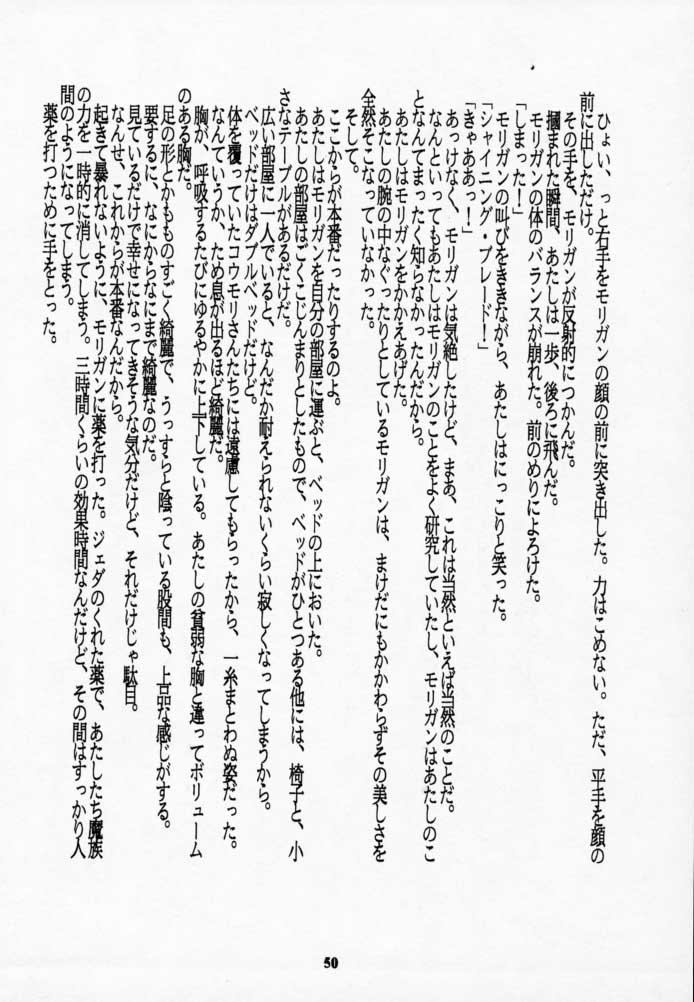 ひょい、っと右手をモリガンの顔の前に突き出した。力はこめない。ただ、平手を顔の
前に出しただけ。
その手を、モリガンが反射的につかんだ。
摑まれた瞬間、あたしは一歩、後ろに飛んだ。
モリガンの体のバランスが崩れた。前のめりによろけた。
「しまった！」
モリガンの叫びをききながら、あたしはにっこりと笑った。
「シャイニング・ブレード！」
「きゃああっ！」
あっけなく、モリガンは気絶したけど、まあ、これは当然といえば当然のことだ。
なんといってもあたしはモリガンのことをよく研究していたし、モリガンはあたしのこ
となんてまったく知らなかったんだから。
あたしはモリガンをかかえあげた。
あたしの腕の中なぐったりとしているモリガンは、まけだにもかかわらずその美しさを
全然そこなっていなかった。
そして。
ここからが本番だったりするのよ。
あたしはモリガンを自分の部屋に運ぶと、ベッドの上においた。
あたしの部屋はごくこじんまりとしたもので、ベッドがひとつある他には、椅子と、小
さなテーブルがあるだけだ。
広い部屋に一人でいると、なんだか耐えられないくらい寂しくなってしまうから。
ベッドだけはダブルベッドだけど。
体を覆っていたコウモリさんたちには遠慮してもらったから、一糸まとわぬ姿だった。
なんていうか、ため息が出るほど綺麗だ。
胸が、呼吸するたびにゆるやかに上下している。あたしの貧弱な胸と違ってボリューム
のある胸だ。
足の形とかもものすごく綺麗で、うっすらと陰っている股間も、上品な感じがする。
要するに、なにからなにまで綺麗なのだ。
見ているだけで幸せになってきそうな気分だけど、それだけじゃ駄目。
なんせ、これからが本番なんだから。
起きて暴れないように、モリガンに薬を打った。ジェダのくれた薬で、あたしたち魔族
の力を一時的に消してしまう。三時間くらいの効果時間なんだけど、その間はすっかり人
間のようになってしまう。
薬を打つために手をとった。
50